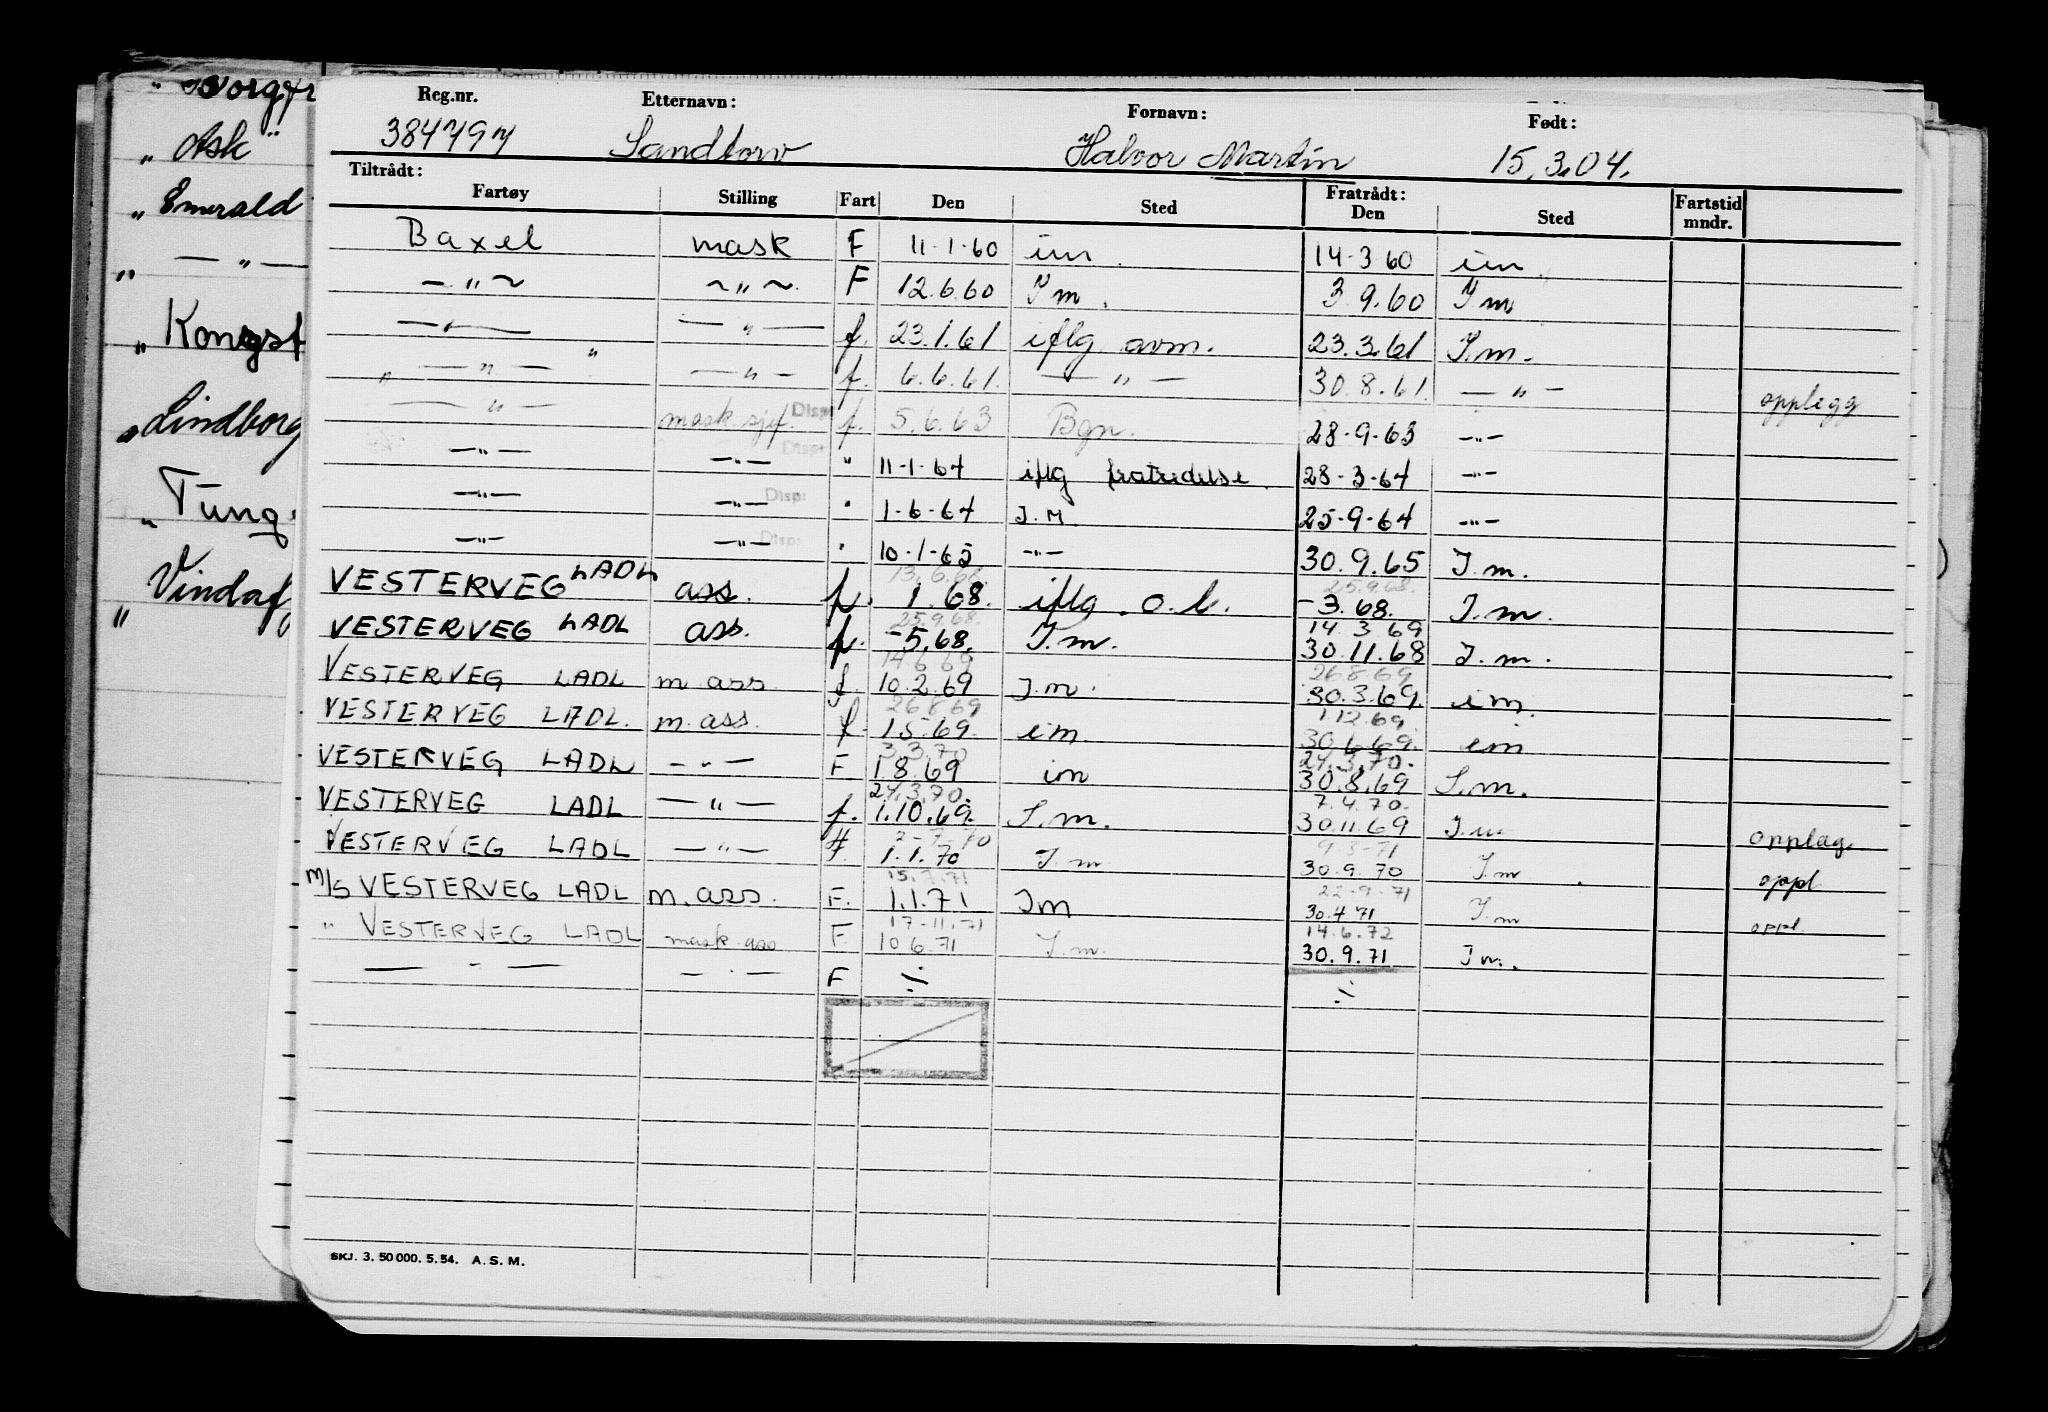 Reg.nr. Etternavn: Fornavn: Født:
384797 Sandtorv Halvor Martin 15.3.04.
Tiltrådt: Fratrådt:
Fartøy Stilling Fart Den Sted Den Sted Fartstid mndr.
Baxel mask F 11-1-60 im. 14-3-60 im.
— " — — " — F 12.6.60 I m. 3.9.60 I m.
— " — — " — f. 23.1.61 iflg. avm. 23.3.61 I.m.
— " — — " — f. 6.6.61. — " — 30.8.61. — " — opplegg
— " — mask.sjef. Disp: f. 5.6.63 Bgn. 28-9-63 — " —
— " — — " — Disp: " 11-1-64 iflg fratredelse. 28-3-64 — " —
— " — — " — Disp: " 1-6-64 I.M. 25-9-64 — " —
— " — — " — Disp: " 10-1-65 — " — 30.9.65 I.m.
13.6.68. 25.9.68.
VESTERVEG LADL ass. f. 1.68. iflg. o.b. -3.68. I.m.
25.9.68. 14.3.69
VESTERVEG LADL ass. f. -5.68. I.m. 30.11.68 I.m.
14.6.69 26.8.69
VESTERVEG LADL m.ass. f. 10.2.69 I.m. 30.3.69. im.
26.8.69 1.12.69
VESTERVEG LADL. m.ass. f. 1.5.69. im 30.6.69. im
3.3.70 24.3.70.
VESTERVEG LADL — " — F. 1.8.69 im 30.8.69 I.m.
24.3.70. 7.4.70.
VESTERVEG LADL — " — f. 1.10.69. I.m. 30.11.69 I.m opplag.
2-7-70 9-3-71
VESTERVEG LADL — " — F. 1.1.70 I.m 30.9.70 I.m. oppl
15.7.71 22-9-71
M/S VESTERVEG LADL m.ass. F. 1.1.71 Im 30.4.71 I.m oppl
17-11.71 14.6.72
" VESTERVEG LADL mask.ass F. 10.6.71 I.m. 30.9.71 Im.
— " — — " — F ÷ ÷
SKJ. 3. 50 000. 5. 54. A. S. M.
" Ask"
" Emerald
" — " —
" Kongst
" Lindborg
" Tung
" Vindaf